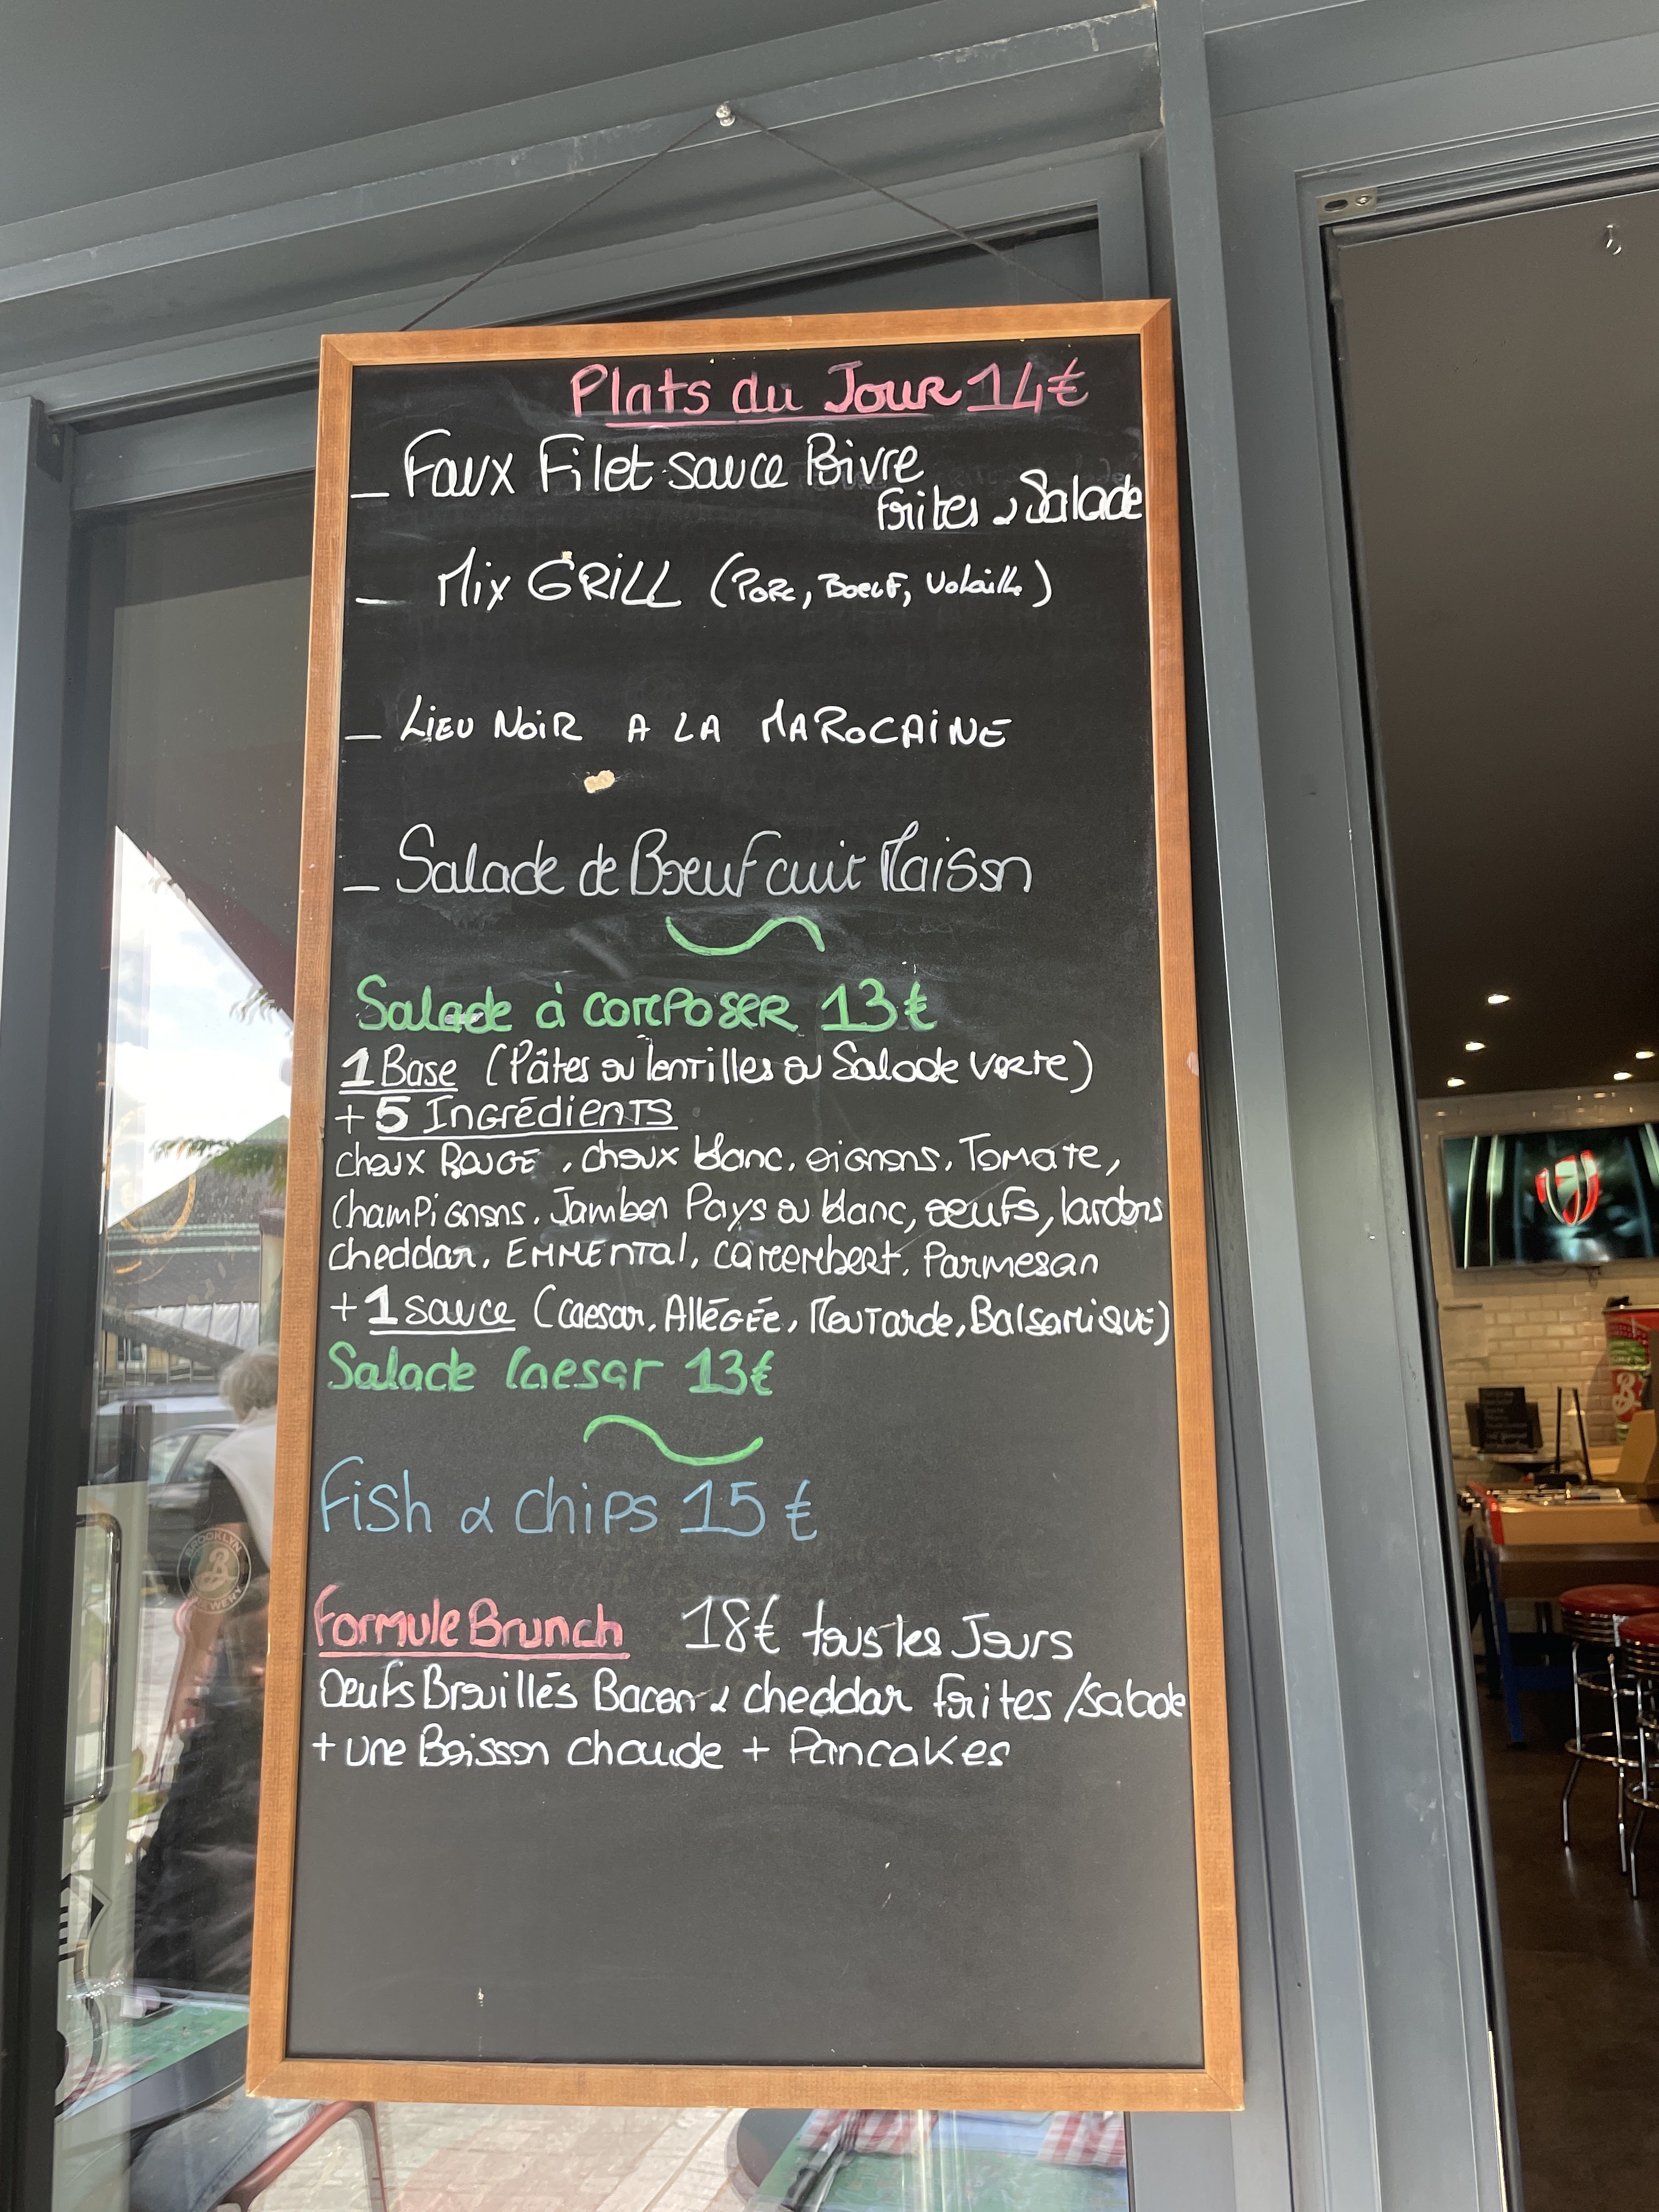 Plats du Jour 14€
_ Faux Filet sauce Poivre
frites, Salade
_ Mix GRILL (Porc, Boeuf, Volaille)
_ LIEU NOIR A LA MAROCAINE
_ Salade de Boeuf cuit Maison
Salade à composer 13€
1 Base (Pâtes ou lentilles ou Salade verte)
+ 5 Ingrédients
choux Rouge, choux blanc, oignons, Tomate,
champignons, Jambon Pays ou blanc, oeufs, lardons
cheddar, EMMENTal, camembert, Parmesan
+ 1 sauce (caesar, Allégée, Moutarde, Balsamique)
Salade Caesar 13€
Fish & chips 15€
Formule Brunch 18€ tous les Jours
Oeufs Brouillés Bacon & cheddar frites /salade
+ une Boisson chaude + Pancakes
BROOKLYN
B
BREWERY
B